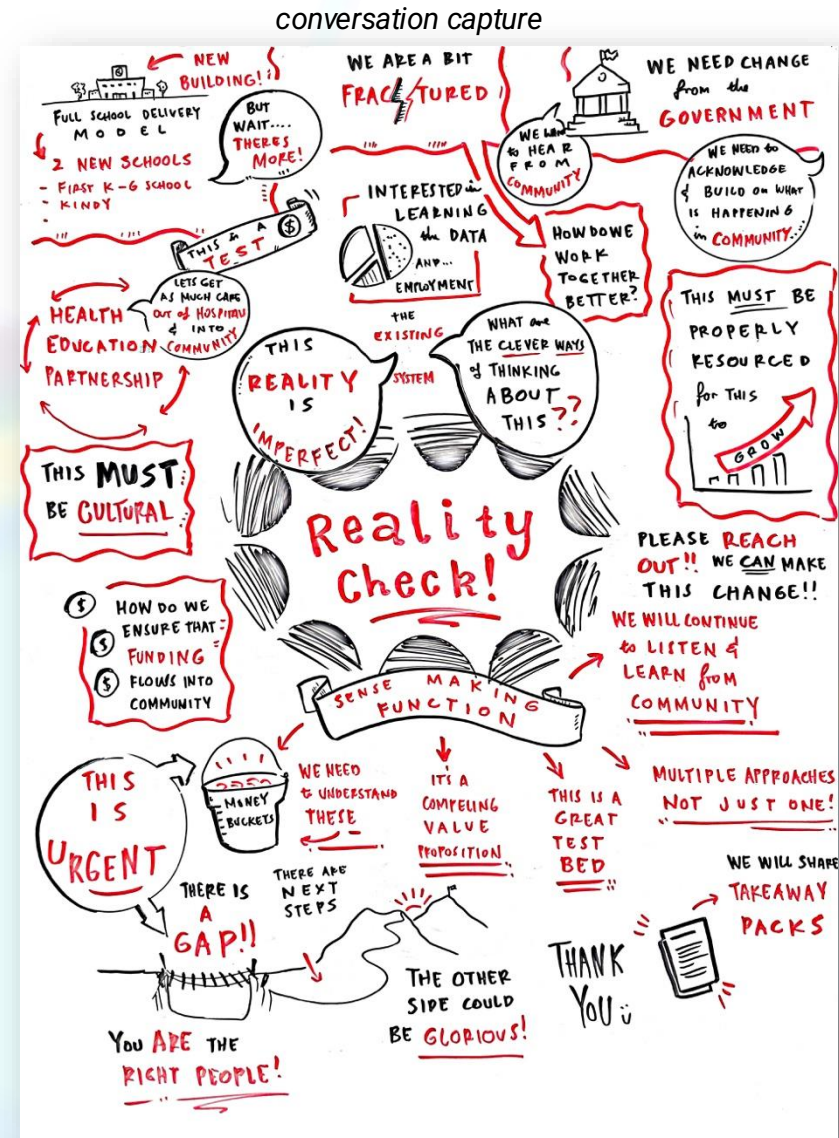 conversation capture
NEW
BUILDING!
FULL SCHOOL DELIVERY
MODEL
2 NEW SCHOOLS
- FIRST K-6 SCHOOL
- KINDY
BUT
WAIT....
THERES
MORE!
THIS is A
TEST
$
WE ARE A BIT
FRACTURED
WE NEED CHANGE
from the
GOVERNMENT
WE WANT
to HEAR
FROM
COMMUNITY
WE NEED to
ACKNOWLEDGE
& BUILD ON WHAT
IS HAPPENING
in COMMUNITY...
INTERESTED in
LEARNING
the DATA
AND...
EMPLOYMENT
HOW DO WE
WORK
TOGETHER
BETTER?
LETS GET
AS MUCH CARE
OUT of HOSPITAL
& INTO
COMMUNITY
HEALTH
EDUCATION
PARTNERSHIP
THIS
REALITY
IS
IMPERFECT!
THE
EXISTING
SYSTEM
WHAT are
THE CLEVER WAYS
of THINKING
ABOUT
THIS??
THIS MUST BE
PROPERLY
RESOURCED
for THIS
to
GROW
THIS MUST
BE CULTURAL
Reality
Check!
PLEASE REACH
OUT!! WE CAN MAKE
THIS CHANGE!!
$ HOW DO WE
$ ENSURE THAT
FUNDING
$ FLOWS INTO
COMMUNITY
SENSE MAKING
FUNCTION
WE WILL CONTINUE
to LISTEN &
LEARN from
COMMUNITY
THIS
IS
URGENT
MONEY
BUCKETS
WE NEED
to UNDERSTAND
THESE
IT'S A
COMPELING
VALUE
PROPOSITION
THIS IS A
GREAT
TEST
BED
MULTIPLE APPROACHES
NOT JUST ONE!
THERE IS
A
GAP!!
THERE ARE
NEXT
STEPS
THE OTHER
SIDE COULD
BE GLORIOUS!
THANK
YOU
WE WILL SHARE
TAKEAWAY
PACKS
YOU ARE THE
RIGHT PEOPLE!